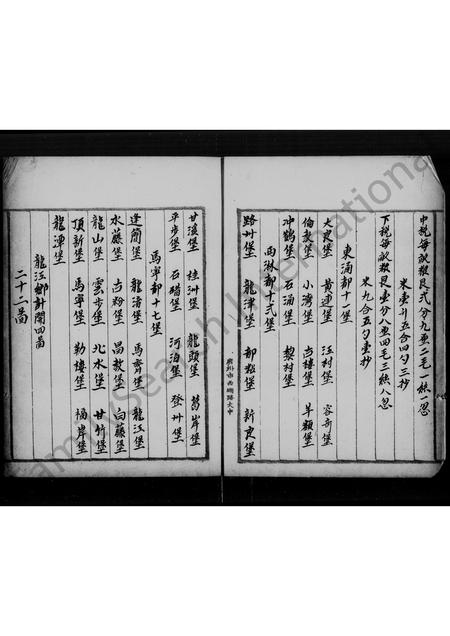 中稅每畝糧艮弍分九厘二毛一絲一忽
米壹升五合四勺三抄
下稅每畝糧艮壹分八厘四毛三絲八忽
米九合五勺壹抄
東涌都十一堡
大良堡 黃連堡 江村堡 容奇堡
伯教堡 小灣堡 古樓堡 羊額堡
冲鶴堡 石涌堡 黎村堡
西淋都十弍堡
路州堡 龍津堡 都粘堡 新良堡
甘溪堡 桂洲堡 龍頭堡 葛岸堡
平步堡 石𥔵堡 河泊堡 登州堡
馬寧都十七堡
逢簡堡 龍渚堡 馬齊堡 龍江堡
水藤堡 古粉堡 昌教堡 白藤堡
龍山堡 雲步堡 北水堡 甘竹堡
頂新堡 馬寧堡 勒樓堡 桶岸堡
龍潭堡
龍江鄉計開四啚
二十二啚
廣州市西湖路大中
Family Search International